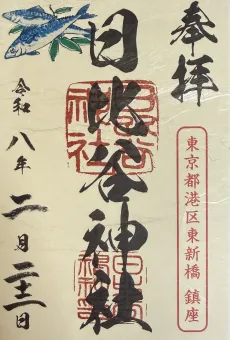 奉拝
東京都港区東新橋 鎮座
日比谷神社
令和八年二月二十二日